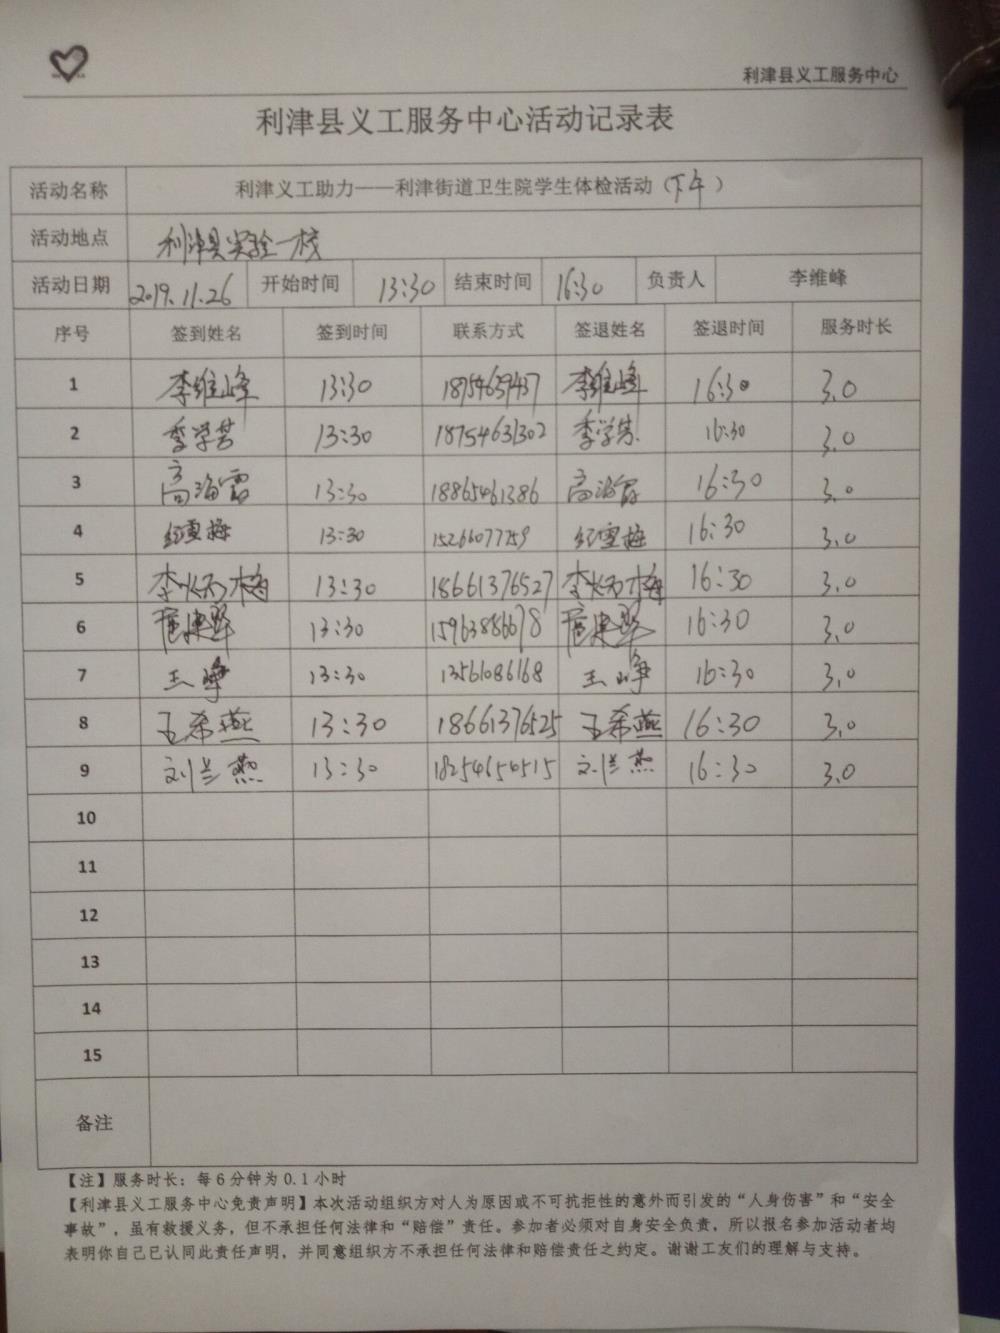 利津县义工服务中心
利津县义工服务中心活动记录表
活动名称 利津义工助力——利津街道卫生院学生体检活动（下午）
活动地点 利津县实验一校
活动日期 2019.11.26 开始时间 13:30 结束时间 16:30 负责人 李维峰
序号 签到姓名 签到时间 联系方式 签退姓名 签退时间 服务时长
1 李维峰 13:30 李维峰 16:30 3.0
2 李学芳 13:30 18754631302 李学芳 16:30 3.0
3 高海霞 13:30 18865461386 高海霞 16:30 3.0
4 纪雪梅 13:30 15266077259 纪雪梅 16:30 3.0
5 13:30 18661376527 16:30 3.0
6 13:30 15963886678 16:30 3.0
7 王峥 13:30 13561086168 王峥 16:30 3.0
8 王希燕 13:30 18661376525 王希燕 16:30 3.0
9 刘兰燕 13:30 18254654515 刘兰燕 16:30 3.0
10
11
12
13
14
15
备注
【注】服务时长：每6分钟为0.1小时
【利津县义工服务中心免责声明】本次活动组织方对人为原因或不可抗拒性的意外而引发的“人身伤害”和“安全
事故”，虽有救援义务，但不承担任何法律和“赔偿”责任。参加者必须对自身安全负责，所以报名参加活动者均
表明你自己已认同此责任声明，并同意组织方不承担任何法律和赔偿责任之约定。谢谢工友们的理解与支持。